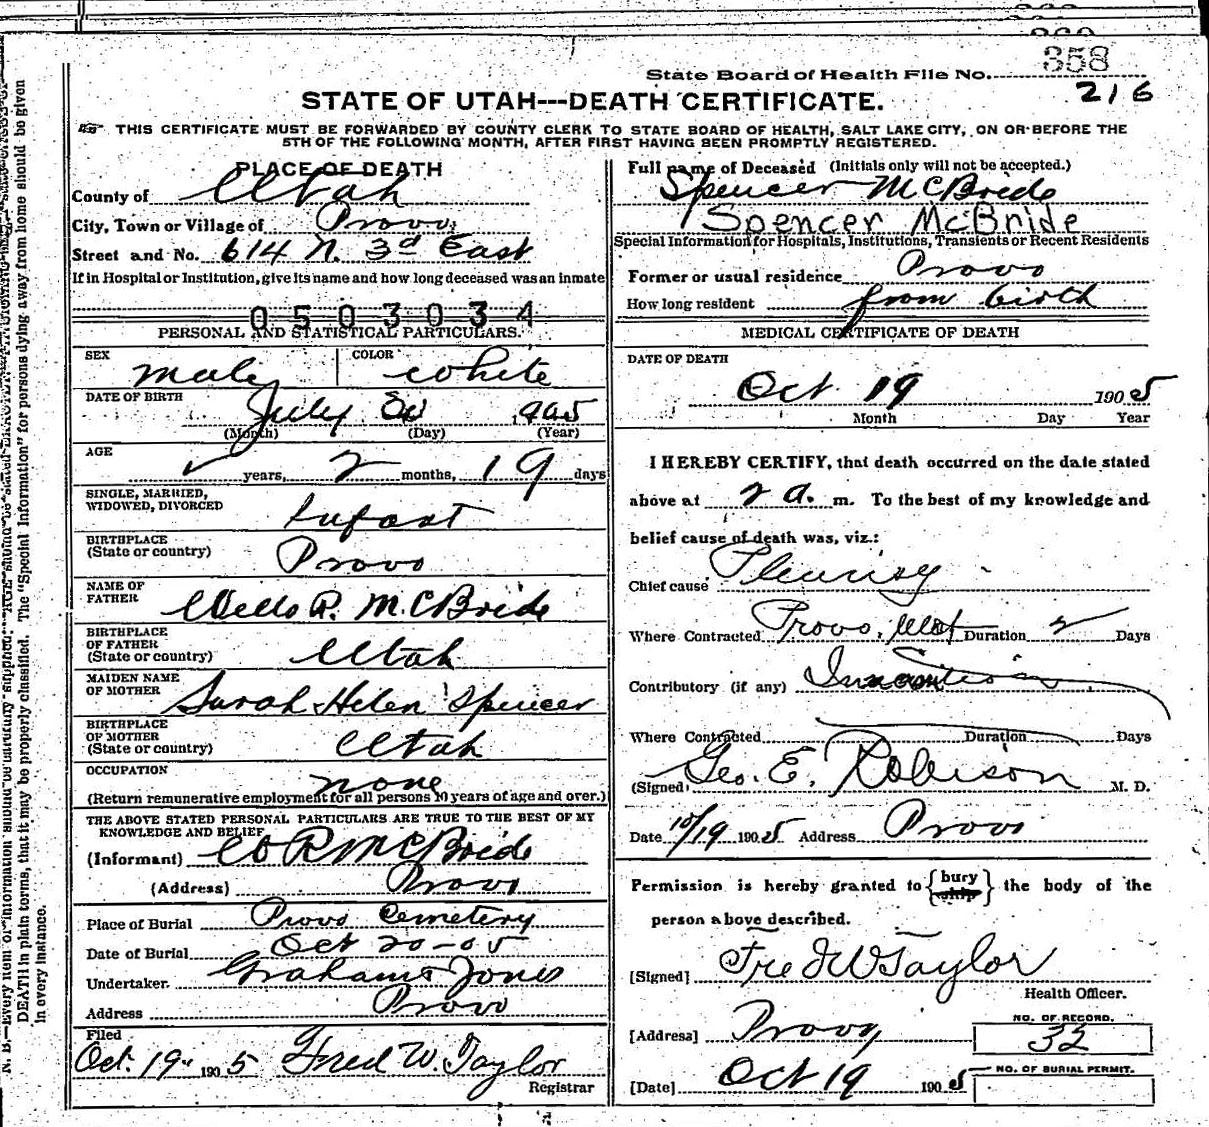 358
State Board of Health File No.
216
STATE OF UTAH---DEATH CERTIFICATE.
THIS CERTIFICATE MUST BE FORWARDED BY COUNTY CLERK TO STATE BOARD OF HEALTH, SALT LAKE CITY, ON OR BEFORE THE
5TH OF THE FOLLOWING MONTH, AFTER FIRST HAVING BEEN PROMPTLY REGISTERED.
PLACE OF DEATH
County of Utah
City, Town or Village of Provo
Street and No. 614 N. 3rd East
If in Hospital or Institution, give its name and how long deceased was an inmate
0503034
PERSONAL AND STATISTICAL PARTICULARS.
SEX male COLOR white
DATE OF BIRTH
July 1905
(Month) (Day) (Year)
AGE
years, 2 months, 19 days
SINGLE, MARRIED,
WIDOWED, DIVORCED Infant
BIRTHPLACE
(State or country) Provo
NAME OF
FATHER Wells R. McBride
BIRTHPLACE
OF FATHER
(State or country) Utah
MAIDEN NAME
OF MOTHER Sarah Helen Spencer
BIRTHPLACE
OF MOTHER
(State or country) Utah
OCCUPATION none
(Return remunerative employment for all persons 10 years of age and over.)
THE ABOVE STATED PERSONAL PARTICULARS ARE TRUE TO THE BEST OF MY
KNOWLEDGE AND BELIEF
(Informant) W R McBride
(Address) Provo
Place of Burial Provo Cemetery
Date of Burial Oct 20-05
Undertaker. Graham & Jones
Address Provo
Filed
Oct. 19" 1905 Fred W. Taylor
Registrar
Full name of Deceased (Initials only will not be accepted.)
Spencer McBride
Spencer McBride
Special Information for Hospitals, Institutions, Transients or Recent Residents
Former or usual residence Provo
How long resident from birth
MEDICAL CERTIFICATE OF DEATH
DATE OF DEATH
Oct 19 1905
Month Day Year
I HEREBY CERTIFY, that death occurred on the date stated
above at 2 a. m. To the best of my knowledge and
belief cause of death was, viz.:
Chief cause Pleurisy
Where Contracted Provo, Utah Duration 2 Days
Contributory (if any) Inanition
Where Contracted Duration Days
(Signed) Geo. E. Robison M. D.
Date 10/19 1905 Address Provo
Permission is hereby granted to {bury ship} the body of the
person above described.
[Signed] Fred W Taylor
Health Officer.
[Address] Provo
[Date] Oct 19 1905
NO. OF RECORD.
32
NO. OF BURIAL PERMIT.
DEATH in plain terms, that it may be properly classified. The "Special Information" for persons dying away from home should be given
in every instance.